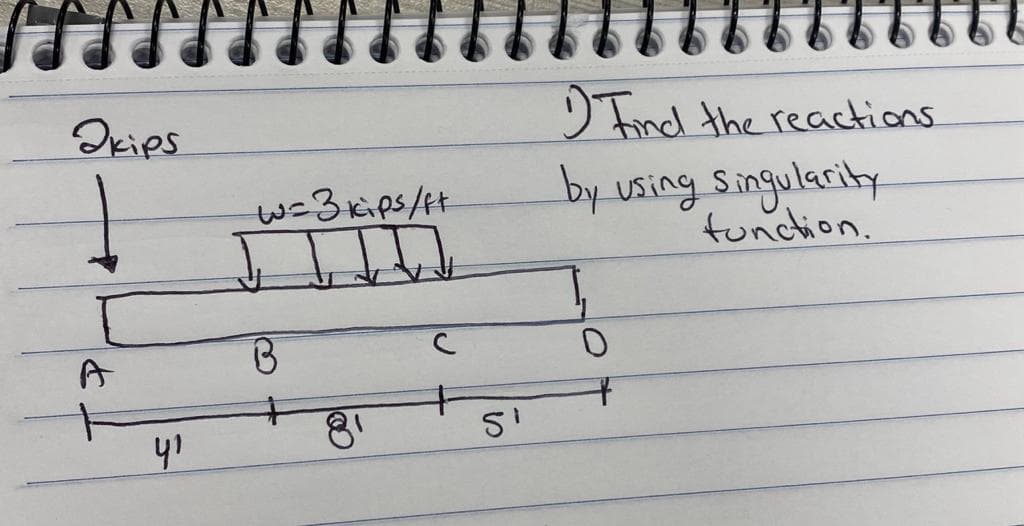 2kips
1) Find the reactions
by using singularity
function.
w=3 kips/ft
A
B
C
D
4'
8'
5'